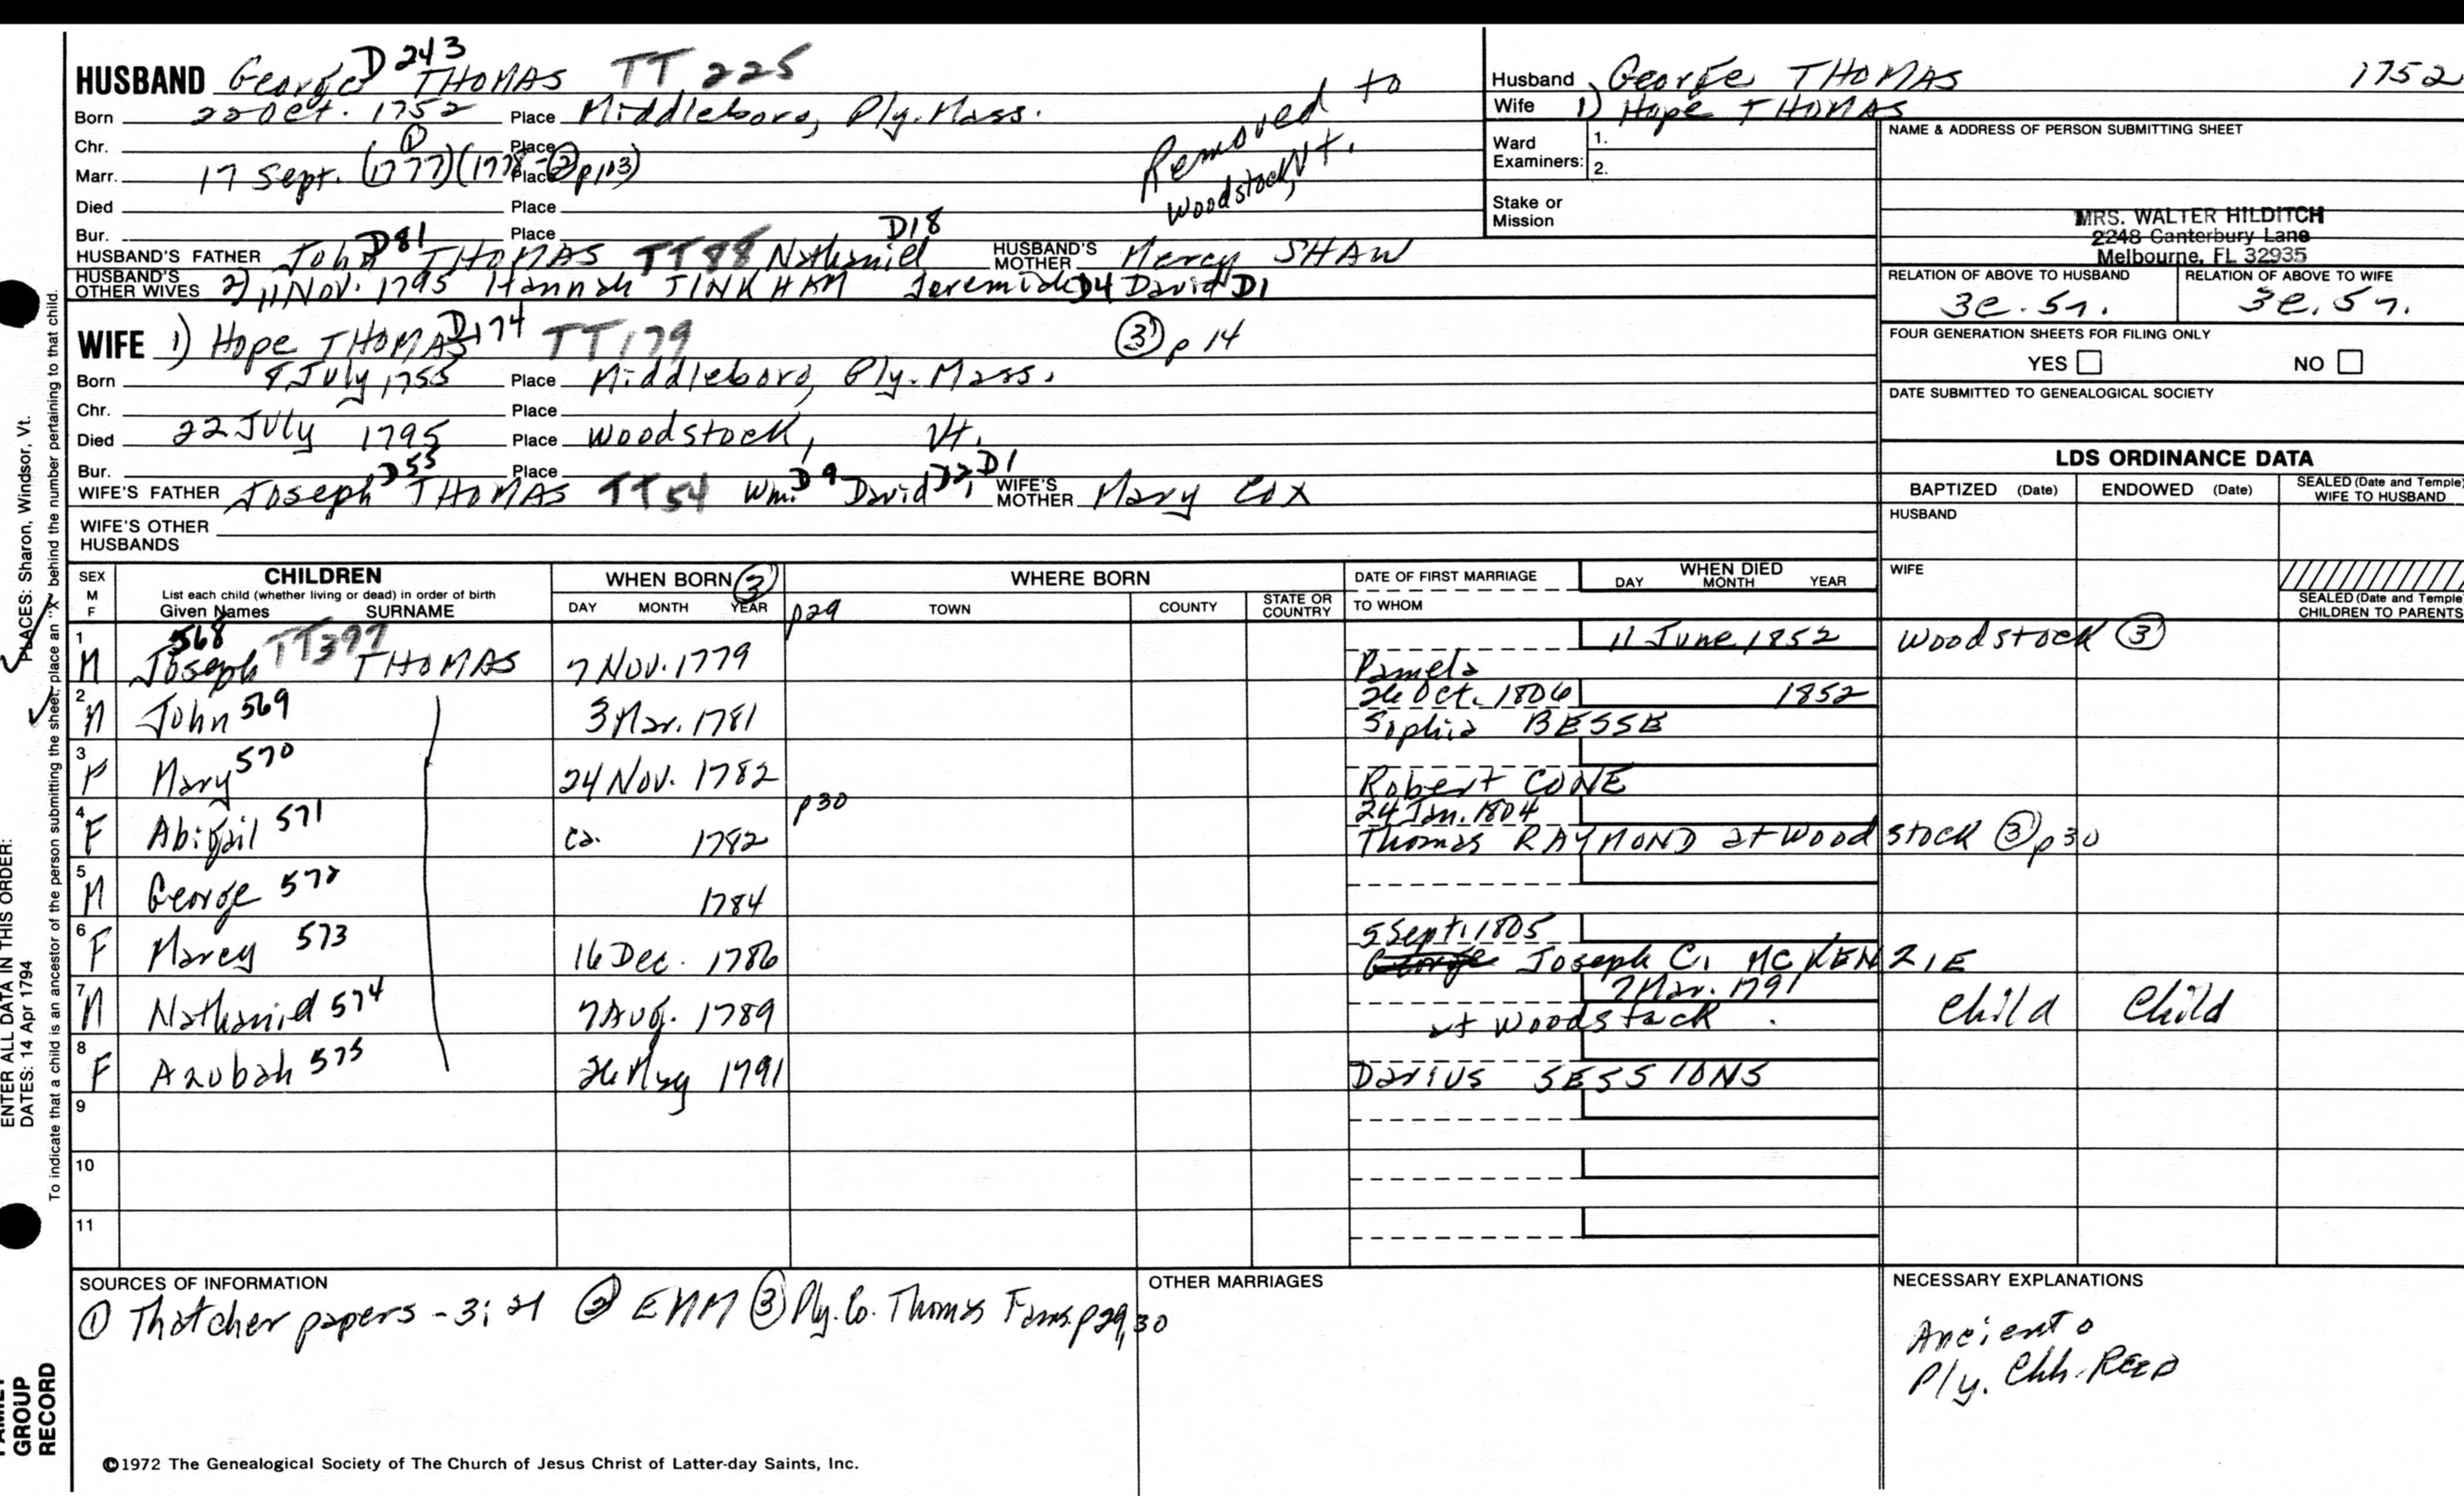 HUSBAND George D243 THOMAS TT 225
Born 22 Oct. 1752 Place Middleboro, Ply. Mass.
Chr. Place
Marr. 17 Sept. (1777)① (1778-② p103) Place
Died Place
Bur. Place
Removed to
Woodstock, Vt.
HUSBAND'S FATHER John D81 THOMAS TT88 Nathaniel D18 HUSBAND'S MOTHER Mercy SHAW
HUSBAND'S OTHER WIVES 2) 11 Nov. 1795 Hannah TINKHAM Jeremiah D4 David D1
WIFE 1) Hope THOMAS D174 TT179 ③ p 14
Born 8 July 1755 Place Middleboro, Ply. Mass.
Chr. Place
Died 22 July 1795 Place Woodstock, Vt.
Bur. Place
WIFE'S FATHER Joseph D55 THOMAS TT54 Wm. D9 David D2, D1 WIFE'S MOTHER Mary COX
WIFE'S OTHER HUSBANDS
Husband George THOMAS 1752
Wife 1) Hope THOMAS
Ward Examiners: 1.
2.
Stake or Mission
NAME & ADDRESS OF PERSON SUBMITTING SHEET
MRS. WALTER HILDITCH
2248 Canterbury Lane
Melbourne, FL 32935
RELATION OF ABOVE TO HUSBAND RELATION OF ABOVE TO WIFE
3c. 5r. 3c. 5r.
FOUR GENERATION SHEETS FOR FILING ONLY
YES NO
DATE SUBMITTED TO GENEALOGICAL SOCIETY
LDS ORDINANCE DATA
BAPTIZED (Date) ENDOWED (Date) SEALED (Date and Temple) WIFE TO HUSBAND
HUSBAND
WIFE
SEALED (Date and Temple) CHILDREN TO PARENTS
SEX M F CHILDREN WHEN BORN ③ WHERE BORN DATE OF FIRST MARRIAGE WHEN DIED
List each child (whether living or dead) in order of birth DAY MONTH YEAR
Given Names SURNAME DAY MONTH YEAR p29 TOWN COUNTY STATE OR COUNTRY TO WHOM
1 M Joseph 568 TT397 THOMAS 7 Nov. 1779 Pamela 11 June 1852 Woodstock ③
2 M John 569 3 Mar. 1781 26 Oct. 1806 1852
Sophia BESSE
3 F Mary 570 24 Nov. 1782 Robert CONE
4 F Abigail 571 ca. 1782 p30 24 Jan. 1804
Thomas RAYMOND at Woodstock ③ p30
5 M George 572 1784
6 F Marcy 573 16 Dec. 1786 5 Sept. 1805
George Joseph C. MCKENZIE
7 M Nathaniel 574 7 Aug. 1789 7 Mar. 1791
at Woodstock. Child Child
8 F Azubah 575 26 May 1791 Darius SESSIONS
9
10
11
SOURCES OF INFORMATION
① Thatcher papers - 3; 21 ② EMM ③ Ply. Co. Thomas Fams. p29,30
OTHER MARRIAGES
NECESSARY EXPLANATIONS
Ply. Chh.
©1972 The Genealogical Society of The Church of Jesus Christ of Latter-day Saints, Inc.
ENTER ALL DATA IN THIS ORDER:
DATES: 14 Apr 1794
PLACES: Sharon, Windsor, Vt.
To indicate that a child is an ancestor of the person submitting the sheet, place an "X" behind the number pertaining to that child.
FAMILY
GROUP
RECORD